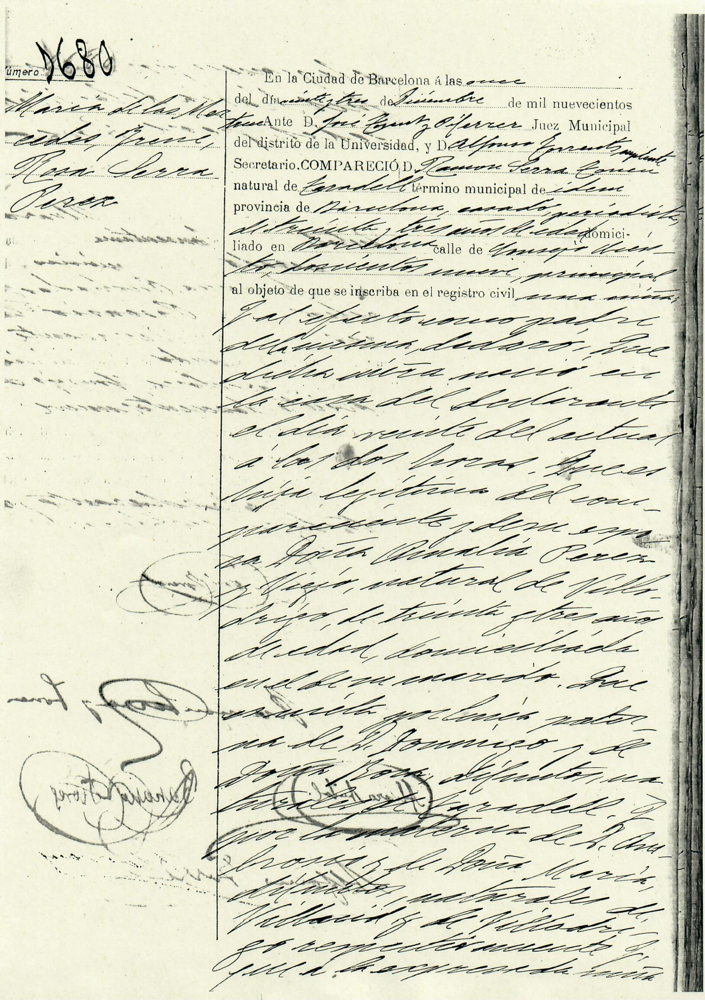 Número 1680
María de las Mer-
cedes, Irene,
Rosa Serra
Perez
En la Ciudad de Barcelona á las once
del día veinte y tres de Diciembre de mil novecientos
Ante D. José Juez Municipal
del distrito de la Universidad, y D. Alfonso suplente
Secretario. COMPARECIÓ D. Ramon Serra
natural de Taradell término municipal de idem
provincia de Barcelona, casado, periodista,
de treinta y tres años de edad domici-
liado en Barcelona calle de Consejo Cien-
to, doscientos nueve, principal
al objeto de que se inscriba en el registro civil una niña;
y al efecto como padre
de la misma, declaró: Que
dicha niña nació en
la casa del declarante
el día veinte del actual
á las dos horas. Que es
hija legítima del com-
pareciente y de su espo-
sa Doña Amalia Perez
y natural de Villo-
drigo, de treinta y tres años
de edad, domiciliada
en el de su marido. Que
es nieta por línea pater-
na de D. Domingo y de
Doña Rosa, difuntos, na-
turales de Taradell. Y
por la materna de D. Am-
brosio y de Doña María,
difuntos, naturales de
y de Villodri-
go respectivamente. Y
que á la expresada niña